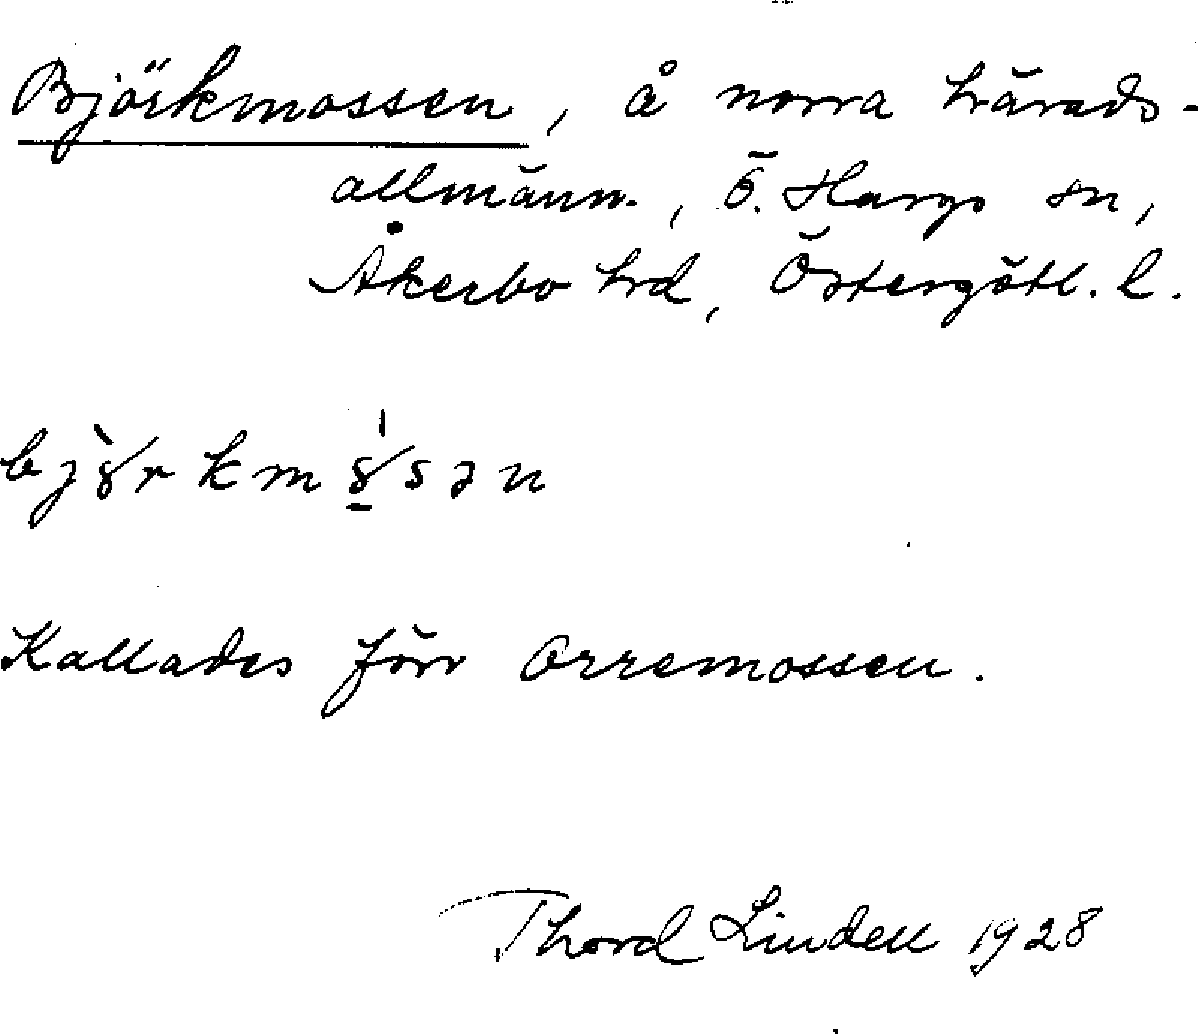 Björkmossen, å norra härads-
allmänn., Ö. Hargs sn,
Åkerbo hrd, Östergötl. l.
Kallades förr Orremossen.
Thord Lindell 1928